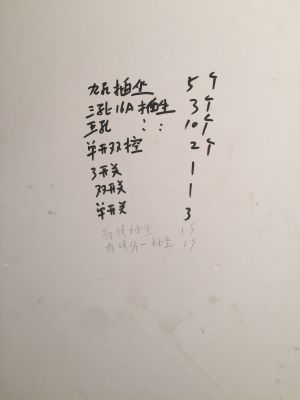 九孔插坐 5个
三孔16A插坐 3个
五孔 : : 10个
单开双控 2个
3开关 1
双开关 1
单开关 3
有线插坐 1个
插坐 1个